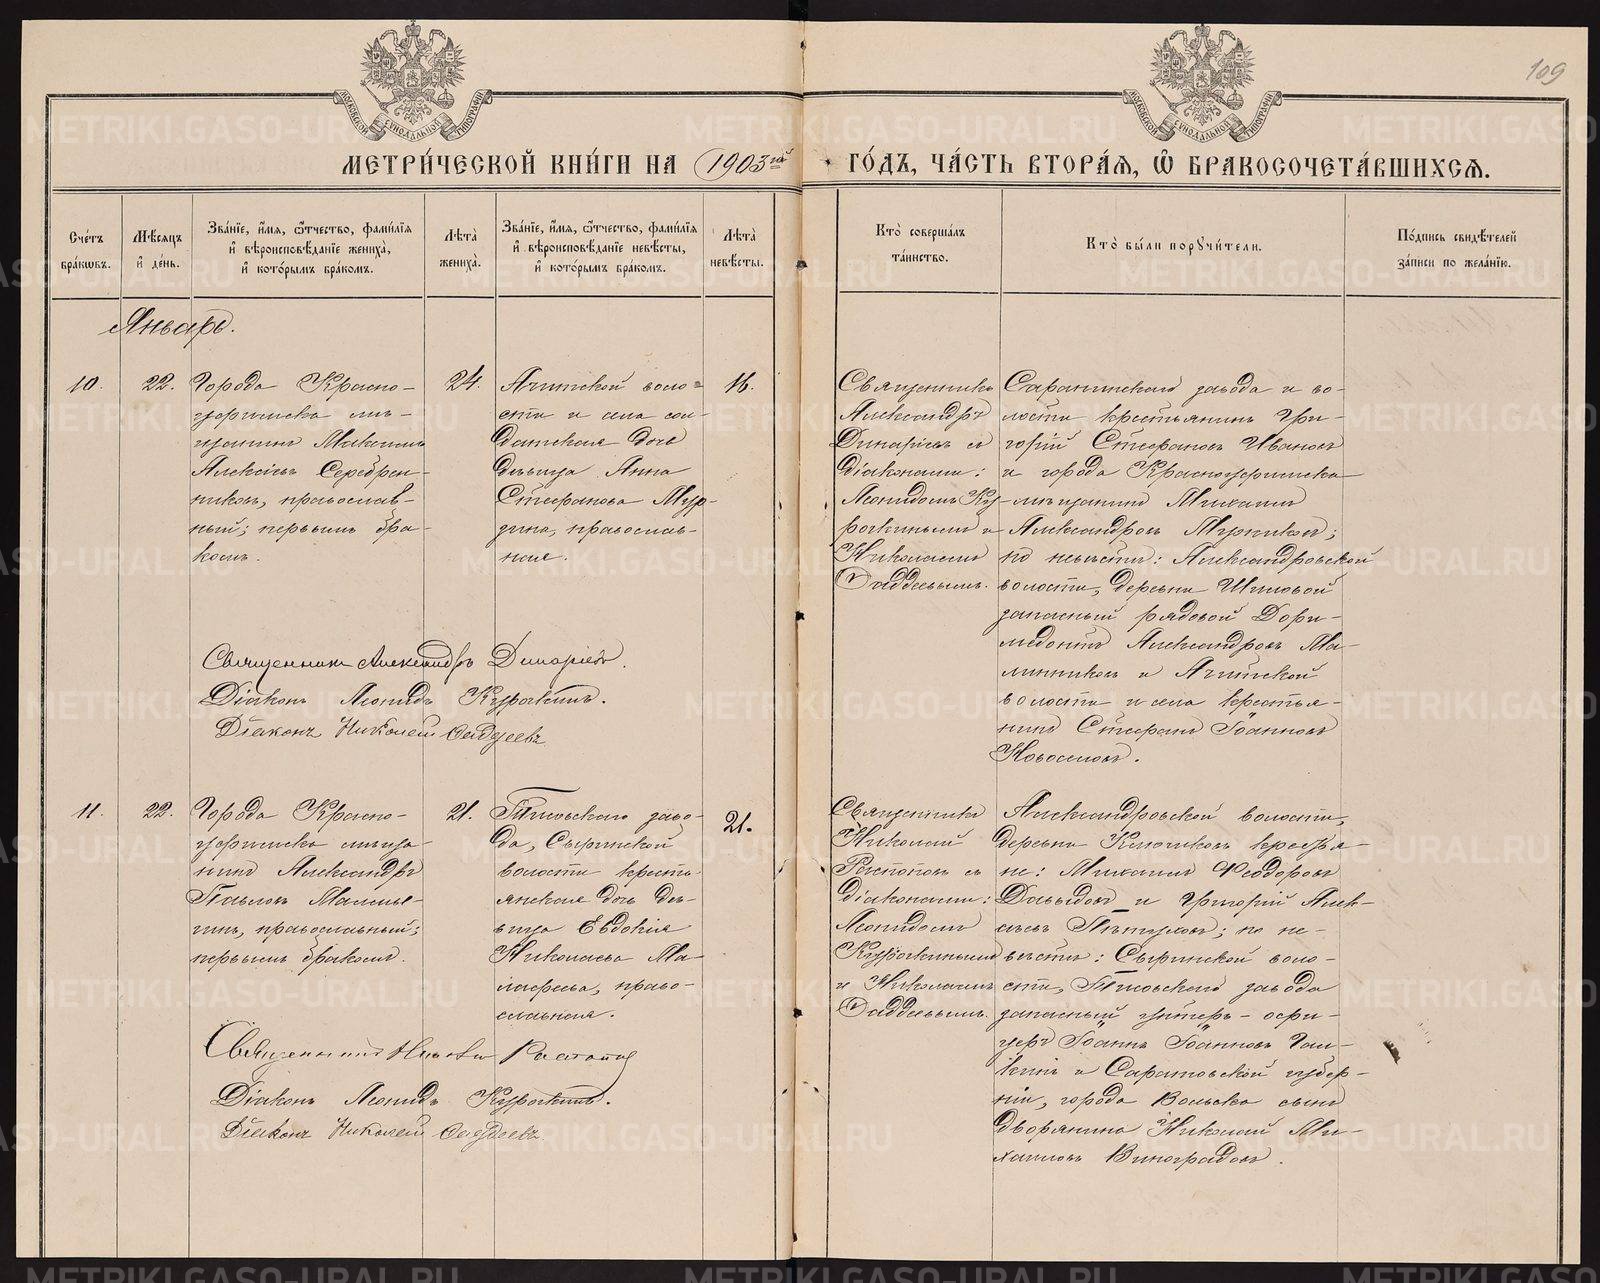 109
МЕТРИ́ЧЕСКОЙ КНИ́ГИ НА 1903й ГО́ДЪ, ЧА́СТЬ ВТОРА́Я, Ѽ БРАКОСОЧЕТА́ВШИХСЯ.
Сче́тъ бра́кѡвъ.
Мѣ́сяцъ и҆ де́нь.
Зва́нїе, и҆́мя, ѻ҆́тчество, фами́лїя и҆ вѣроисповѣ́данїе жениха̀, и҆ кото́рымъ бра́комъ.
Лѣ́та жениха̀.
Зва́нїе, и҆́мя, ѻ҆́тчество, фами́лїя и҆ вѣроисповѣ́данїе невѣ́сты, и҆ кото́рымъ бра́комъ.
Лѣ́та невѣ́сты.
Кто̀ соверша́лъ та́инство.
Кто̀ бы́ли порꙋчи́тели.
По́дпись свидѣ́телей за́писи по жела́нїю.
Январь.
10.
22.
Города Красно-
уфимска мѣ-
щанинъ Максимъ
Алексѣевъ Серебрен-
никовъ, православ-
ный; первымъ бра-
комъ.
24.
Ачитской воло-
сти и села сол-
датская дочь
дѣвица Анна
Стефанова Мур-
дина, православ-
ная.
16.
Священникъ
Александръ
Динаріевъ съ
діаконами:
Леонидомъ Ку-
рочкинымъ и
Николаемъ
Ѳаддеевымъ.
Саранинскаго завода и во-
лости крестьянинъ Гри-
горій Стефановъ Ивановъ
и города Красноуфимска
мѣщанинъ Михаилъ
Александровъ Мурзиковъ;
по невѣстѣ: Александровской
волости, деревни Шиловой
запасный рядовой Дори-
медонтъ Александровъ Ма-
линниковъ и Ачитской
волости и села крестья-
нинъ Стефанъ Іоанновъ
Новоселовъ.
Священникъ Александръ Динаріевъ.
Діаконъ Леонидъ Курочкинъ.
Діаконъ Николай Ѳаддеевъ
11.
22.
Города Красно-
уфимска мѣща-
нинъ Александръ
Павловъ Малмы-
гинъ, православный;
первымъ бракомъ.
21.
Тисовскаго заво-
да, Сыринской
волости кресть-
янская дочь дѣ-
вица Евдокія
Николаева Ма-
лафеева, право-
славная.
21.
Священникъ
Николай
Распоповъ съ
діаконами:
Леонидомъ
Курочкинымъ
и Николаемъ
Ѳаддеевымъ.
Александровской волости,
деревни Ключиковъ крестья-
не: Михаилъ Ѳеодоровъ
Давыдовъ и Григорій Алек-
сѣевъ Пѣтуховъ; по не-
вѣстѣ: Сыринской воло-
сти, Тисовскаго завода
запасный унтеръ-офи-
церъ Іоаннъ Іоанновъ Гал-
кинъ и Саратовской губер-
ніи, города Вольска сынъ
дворянина Николай Ми-
хаиловъ Виноградовъ.
Священникъ Николай Распоповъ
Діаконъ Леонидъ Курочкинъ.
Діаконъ Николай Ѳаддеевъ
METRIKI.GASO-URAL.RU